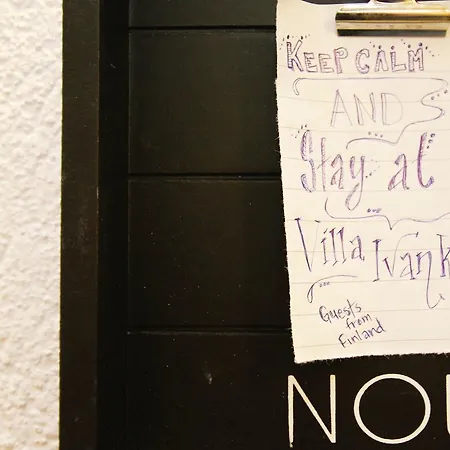 KEEP CALM
AND
Stay at
Villa Ivank
Guests
from
Finland
NOU